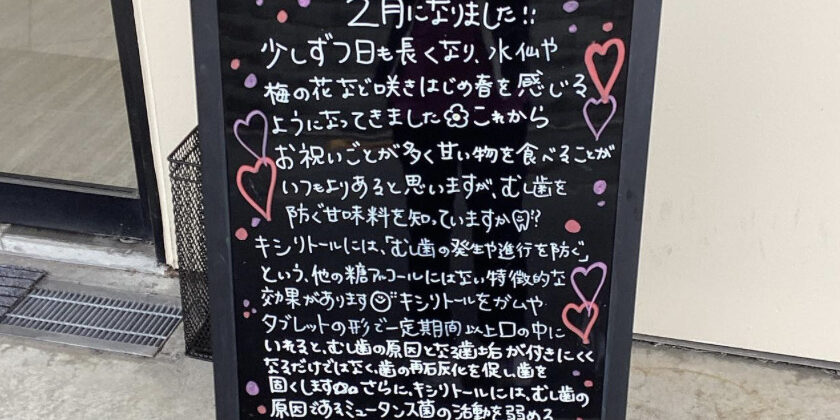 2月になりました!!
少しずつ日も長くなり、水仙や
梅の花など咲きはじめ春を感じる
ようになってきました これから
お祝いごとが多く甘い物を食べることが
いつもよりあると思いますが、むし歯を
防ぐ甘味料を知っていますか!?
キシリトールには、「むし歯の発生や進行を防ぐ」
という、他の糖アルコールにはない特徴的な
効果があります キシリトールをガムや
タブレットの形で一定期間以上口の中に
いれると、むし歯の原因となる歯垢が付きにくく
なるだけではなく、歯の再石灰化を促し歯を
固くします さらに、キシリトールには、むし歯の
原因であるミュータンス菌の活動を弱める